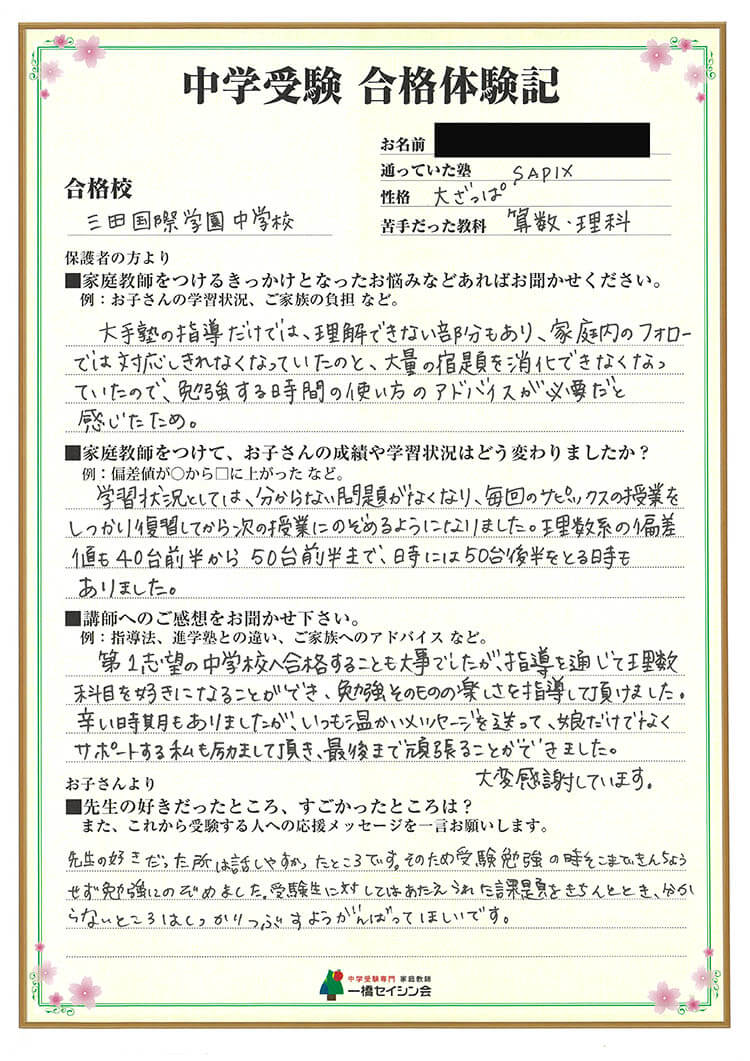 中学受験 合格体験記
お名前
通っていた塾 SAPIX
合格校
性格 大ざっぱ
三田国際学園中学校
苦手だった教科 算数・理科
保護者の方より
■家庭教師をつけるきっかけとなったお悩みなどあればお聞かせください。
例：お子さんの学習状況、ご家族の負担 など。
大手塾の指導だけでは、理解できない部分もあり、家庭内のフォロー
では対応しきれなくなっていたのと、大量の宿題を消化できなくなっ
ていたので、勉強する時間の使い方のアドバイスが必要だと
感じたため。
■家庭教師をつけて、お子さんの成績や学習状況はどう変わりましたか？
例：偏差値が○から□に上がった など。
学習状況としては、分からない問題がなくなり、毎回のサピックスの授業を
しっかり復習してから次の授業にのぞめるようになりました。理数系の偏差
値も40台前半から50台前半まで、時には50台後半をとる時も
ありました。
■講師へのご感想をお聞かせ下さい。
例：指導法、進学塾との違い、ご家族へのアドバイス など。
第1志望の中学校へ合格することも大事でしたが、指導を通じて理数
科目を好きになることができ、勉強そのものの楽しさを指導して頂けました。
辛い時期もありましたが、いつも温かいメッセージを送って、娘だけでなく
サポートする私も励まして頂き、最後まで頑張ることができました。
大変感謝しています。
お子さんより
■先生の好きだったところ、すごかったところは？
また、これから受験する人への応援メッセージを一言お願いします。
先生の好きだった所は話しやすかったところです。そのため受験勉強の時そこまできんちょう
せず勉強にのぞめました。受験生に対してはあたえられた課題をきちんととき、分か
らないところはしっかりつぶすようがんばってほしいです。
中学受験専門 家庭教師
一橋セイシン会